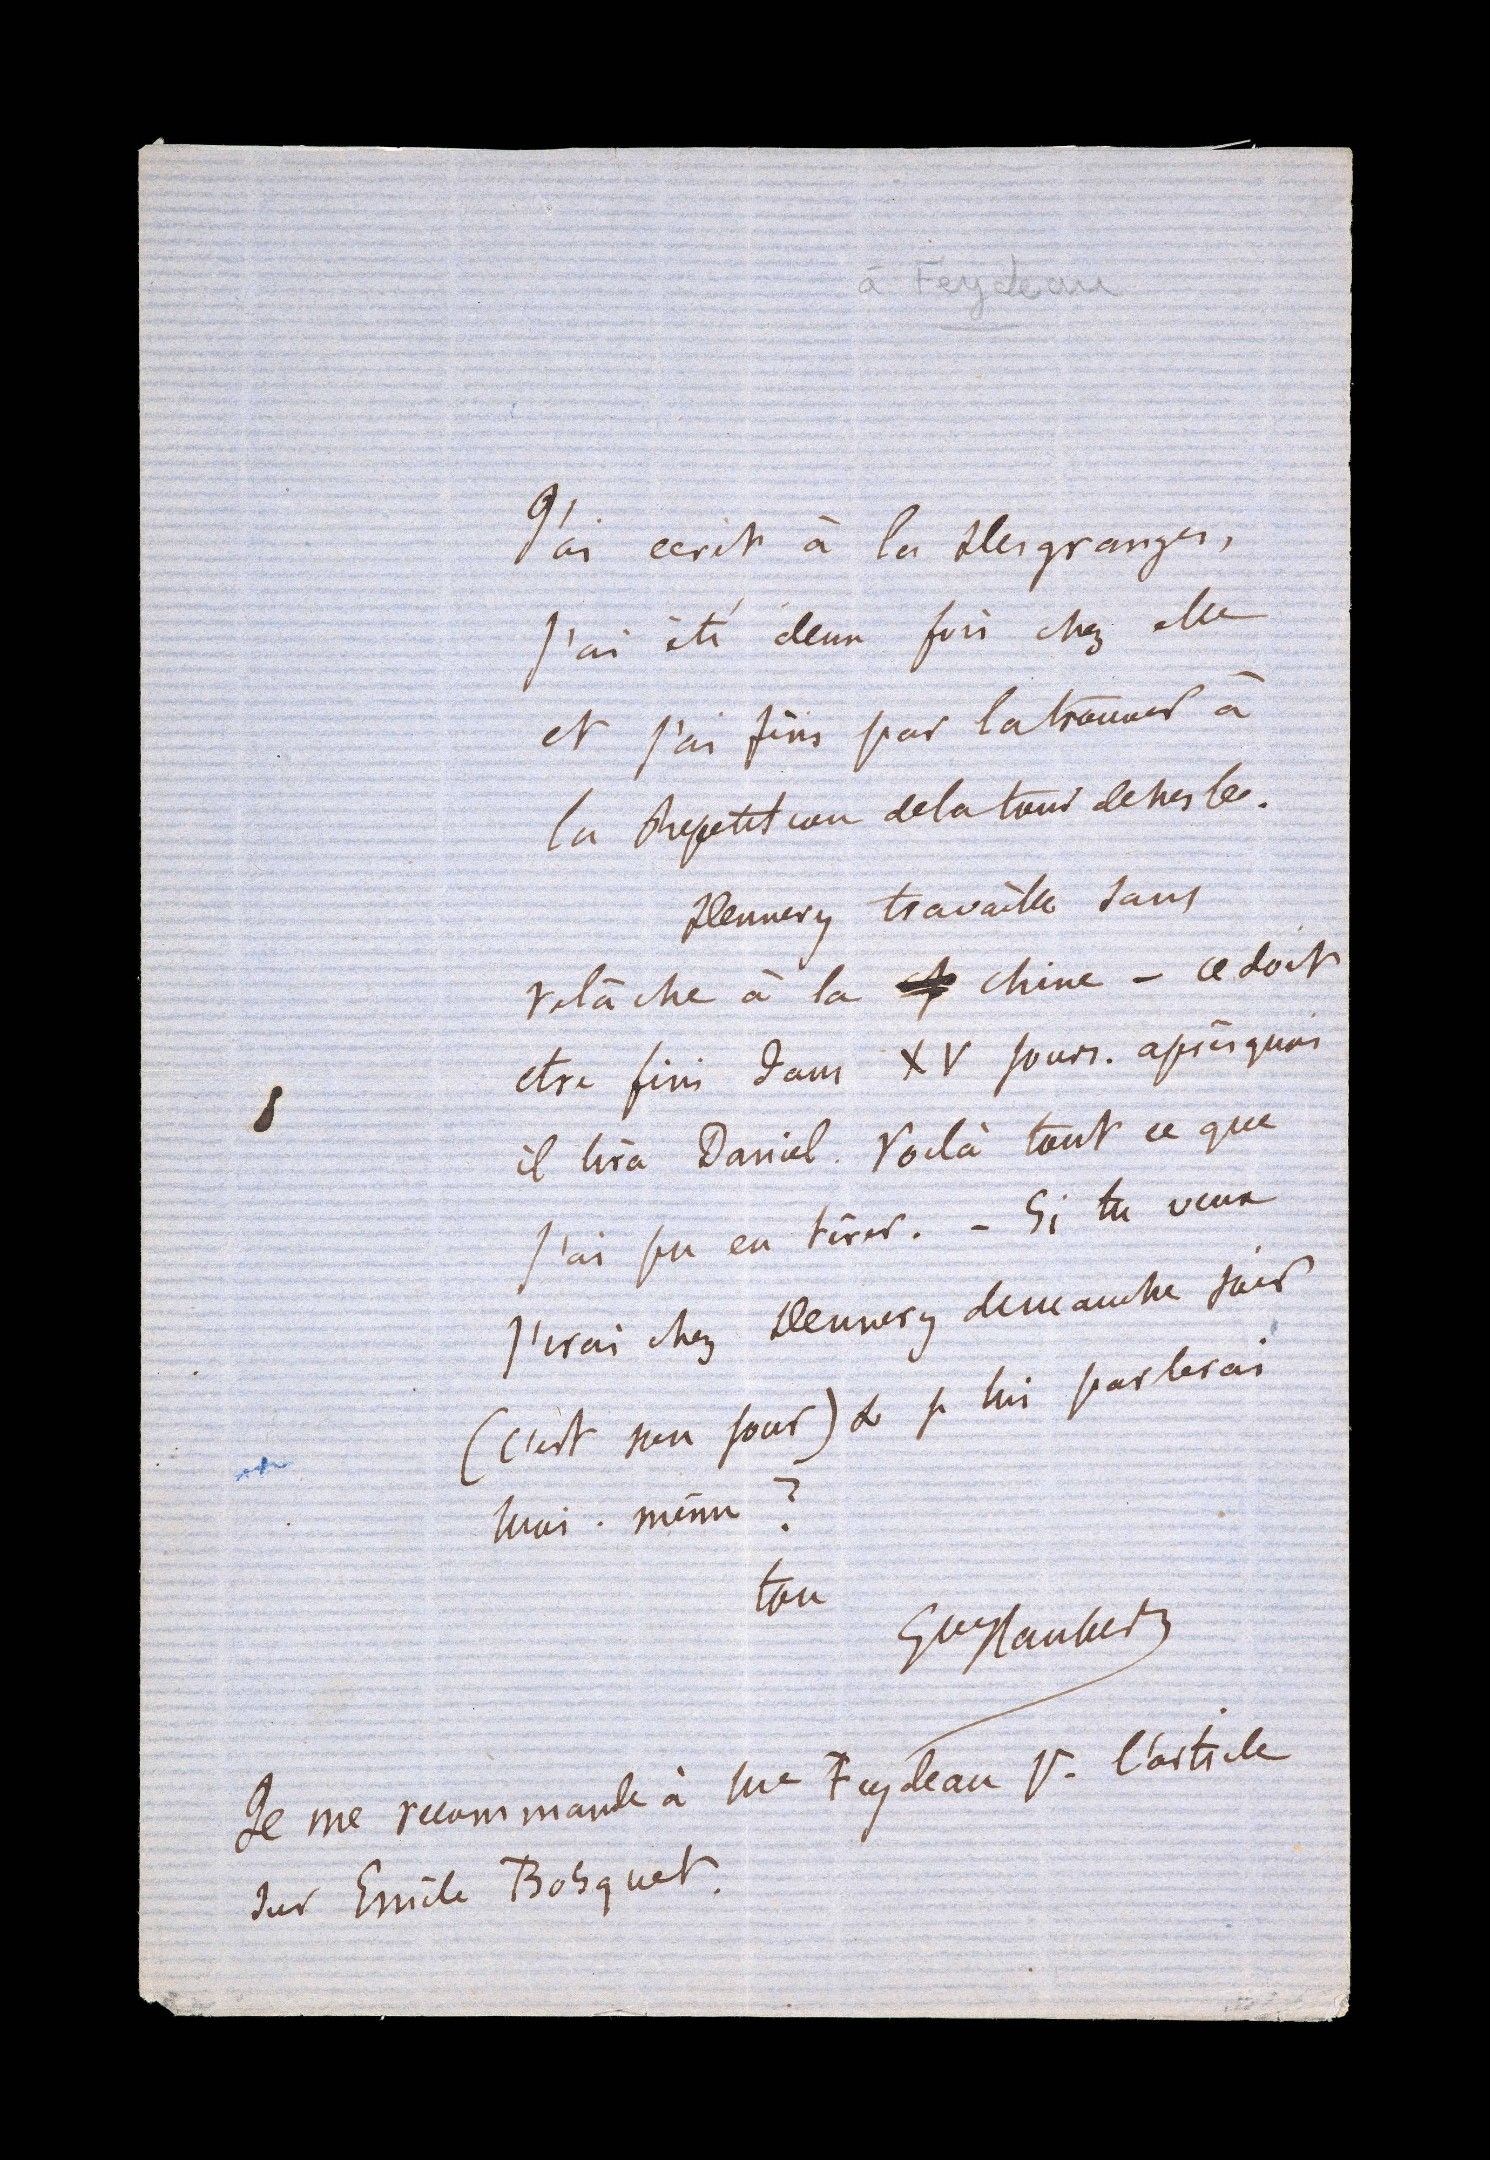 à Feydeau
J'ai ecrit à la Desgranges,
j'ai été deux fois chez elle
et j'ai fini par la trouver à
la Repetition de la tour de nesle.
Dennery travaille sans
relâche à la chine – ce doit
etre fini dans XV jours. après quoi
il lira Daniel. Voilà tout ce que
j'ai pu en tirer. – Si tu veux
j'irai chez Dennery dimanche soir
(c'est son jour) & je lui parlerai
moi-même ?
ton
Gve Flaubert
Je me recommande à Me Feydeau pr. l'article
sur Emile Bosquet.